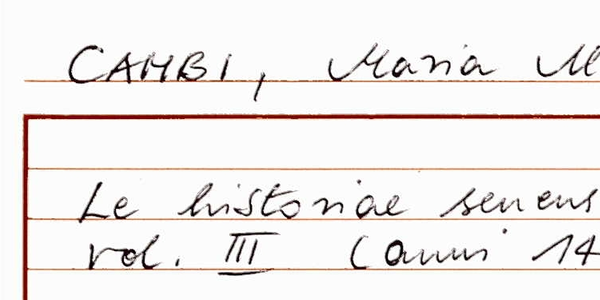 CAMBI, Maria M
Le historiae senens
vol. III (anni 14